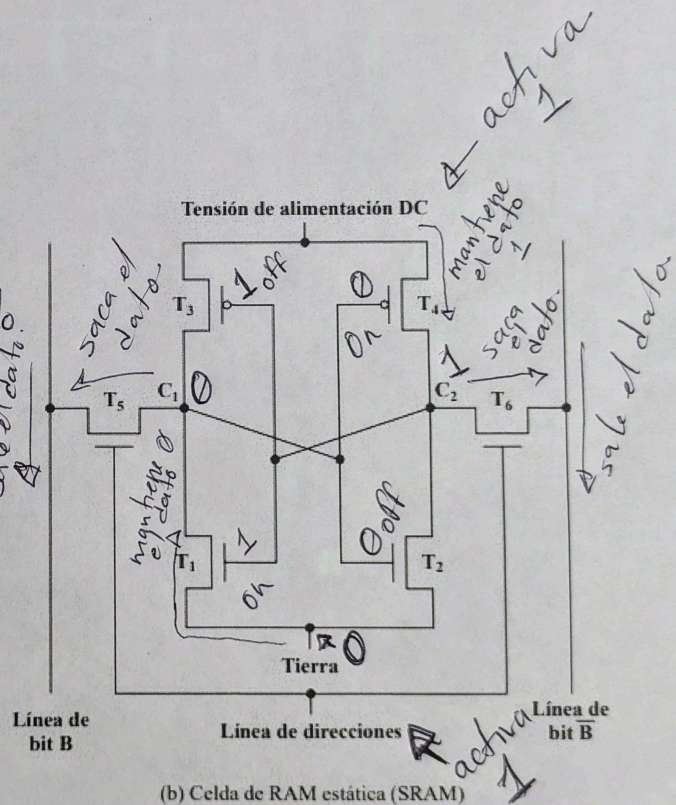 activa
1
Tensión de alimentación DC
mantiene
el dato
1
saca el
dato
T₃
1 off
0
On
T₄
saca
el
dato.
sale el dato
sale el dato 0
T₅
C₁
0
1
C₂
T₆
mantiene
el
dato 0
T₁
1
On
0 off
T₂
0
Tierra
Línea de
bit B
Línea de direcciones
activa
1
Línea de
bit B̅
(b) Celda de RAM estática (SRAM)